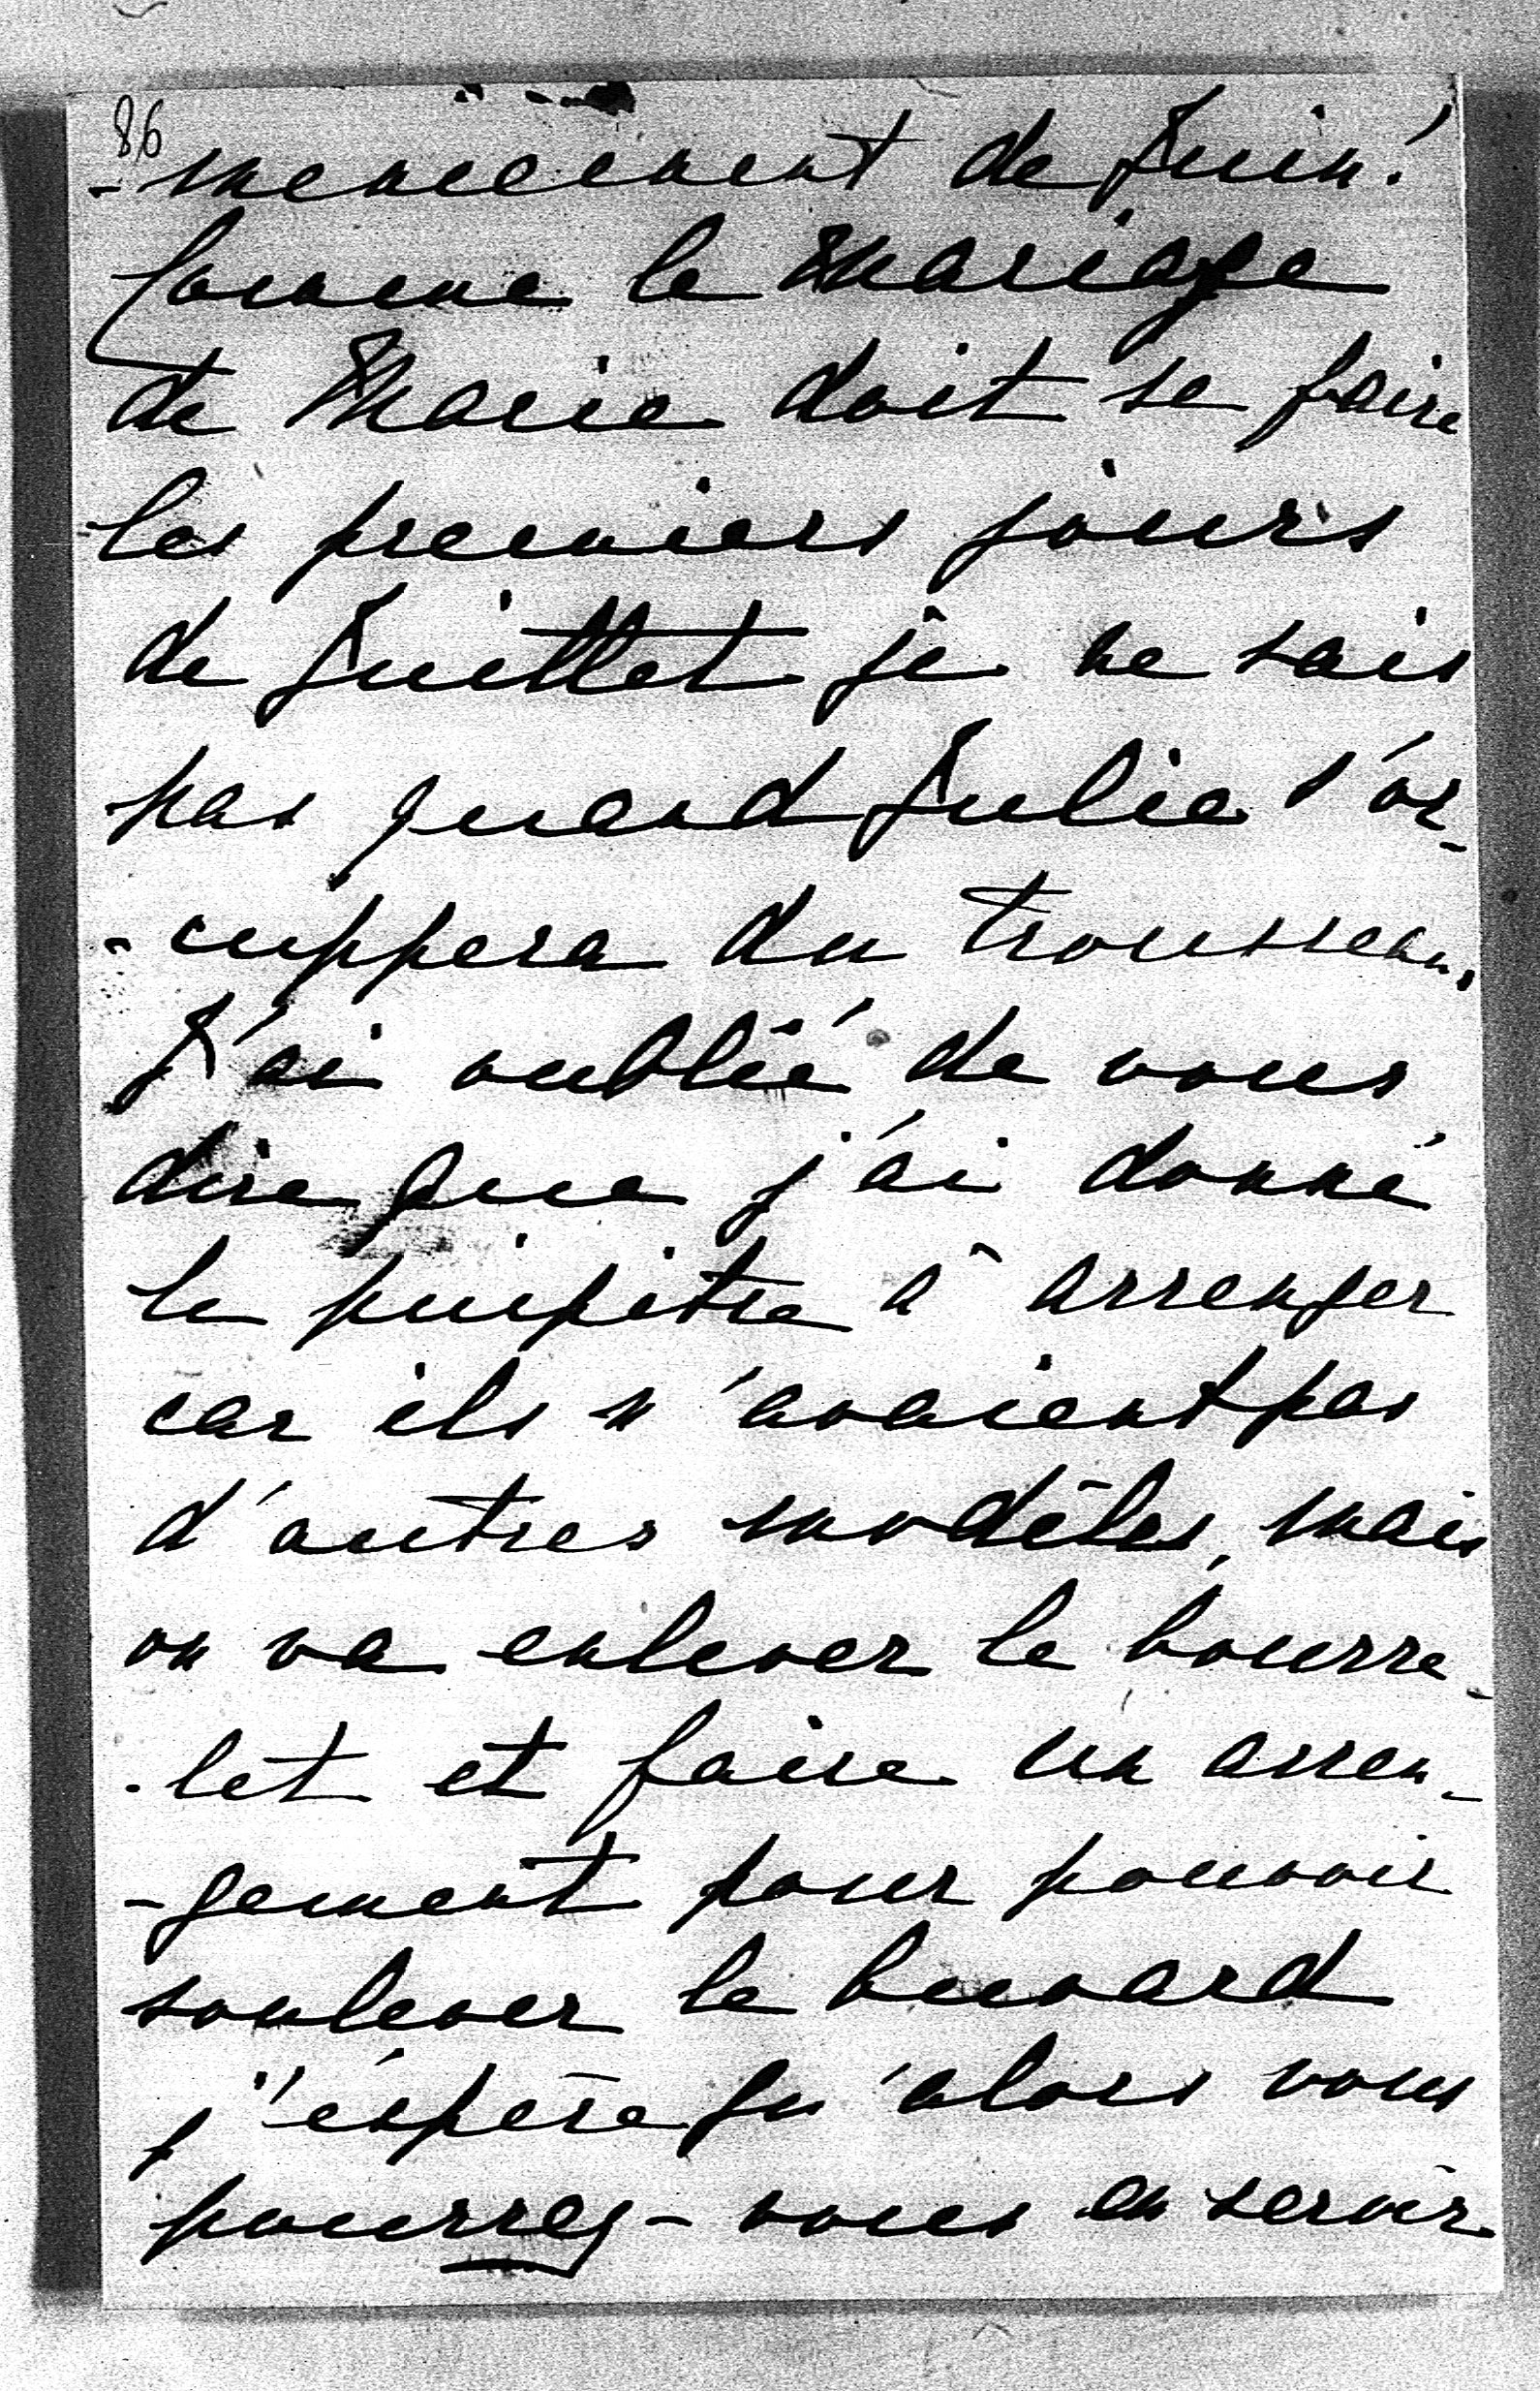 86
-mencement de Juin!
Comme le Mariage
de Marie doit se faire
les premiers jours
de Juillet je ne sais
pas quand Julie s'oc-
-cuppera du trousseau.
J'ai oublié de vous
dire que j'ai donné
le puipitre à arrenger
car ils n'avaient pas
d'autres modèles, mais
on va enlever le bourre-
-let et faire un arren-
-gement pour pouvoir
soulever le buvard
j'éspère qu'alors vous
pourrez-vous en servir